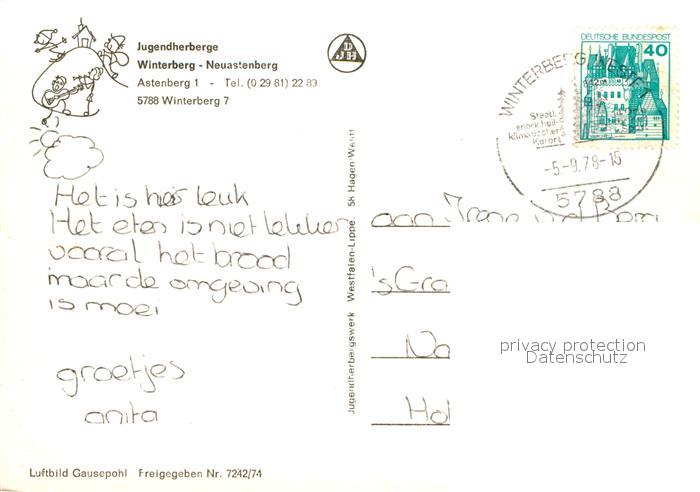 Jugendherberge
Winterberg - Neuastenberg
Astenberg 1 - Tel. (0 29 81) 22 89
5788 Winterberg 7
DJH
DEUTSCHE BUNDESPOST
40
WINTERBERG, WESTF 1
Staatl.
anerk. heil-
klimatischer
Kurort
-5.-9.78-16
5788
Het is hier leuk
Het eten is niet lekker
vooral het brood
maar de omgeving
is moei
groetjes
anita
aan
's Gra
Na
Hol
privacy protection
Datenschutz
Jugendherbergswerk Westfalen-Lippe 58 Hagen/Westf.
Luftbild Gausepohl Freigegeben Nr. 7242/74